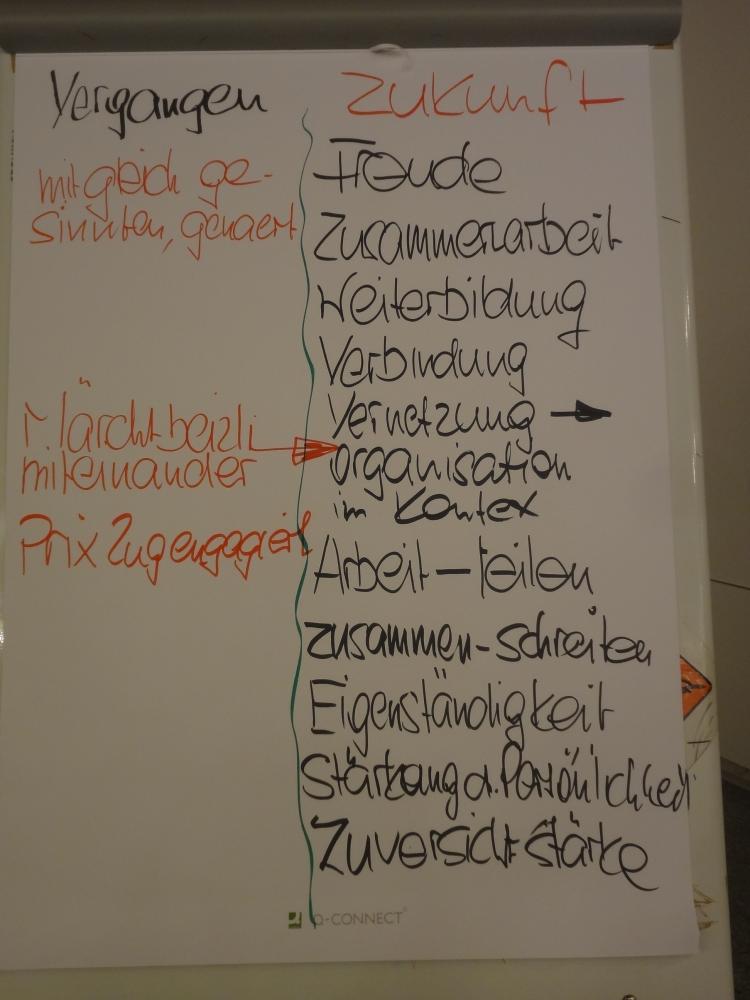 Vergangen
mit gleich ge-
sinnten, genaert
Märchtbeizli
miteinander
Prix Zug engagiert
Zukunft
Freude
Zusammenarbeit
Weiterbildung
Verbindung
Vernetzung →
organisation
im Kontex
Arbeit – teilen
zusammen-schreiten
Eigenständigkeit
Stärkung d. Persönlichkeit
Zuversicht Stärke
Q-CONNECT